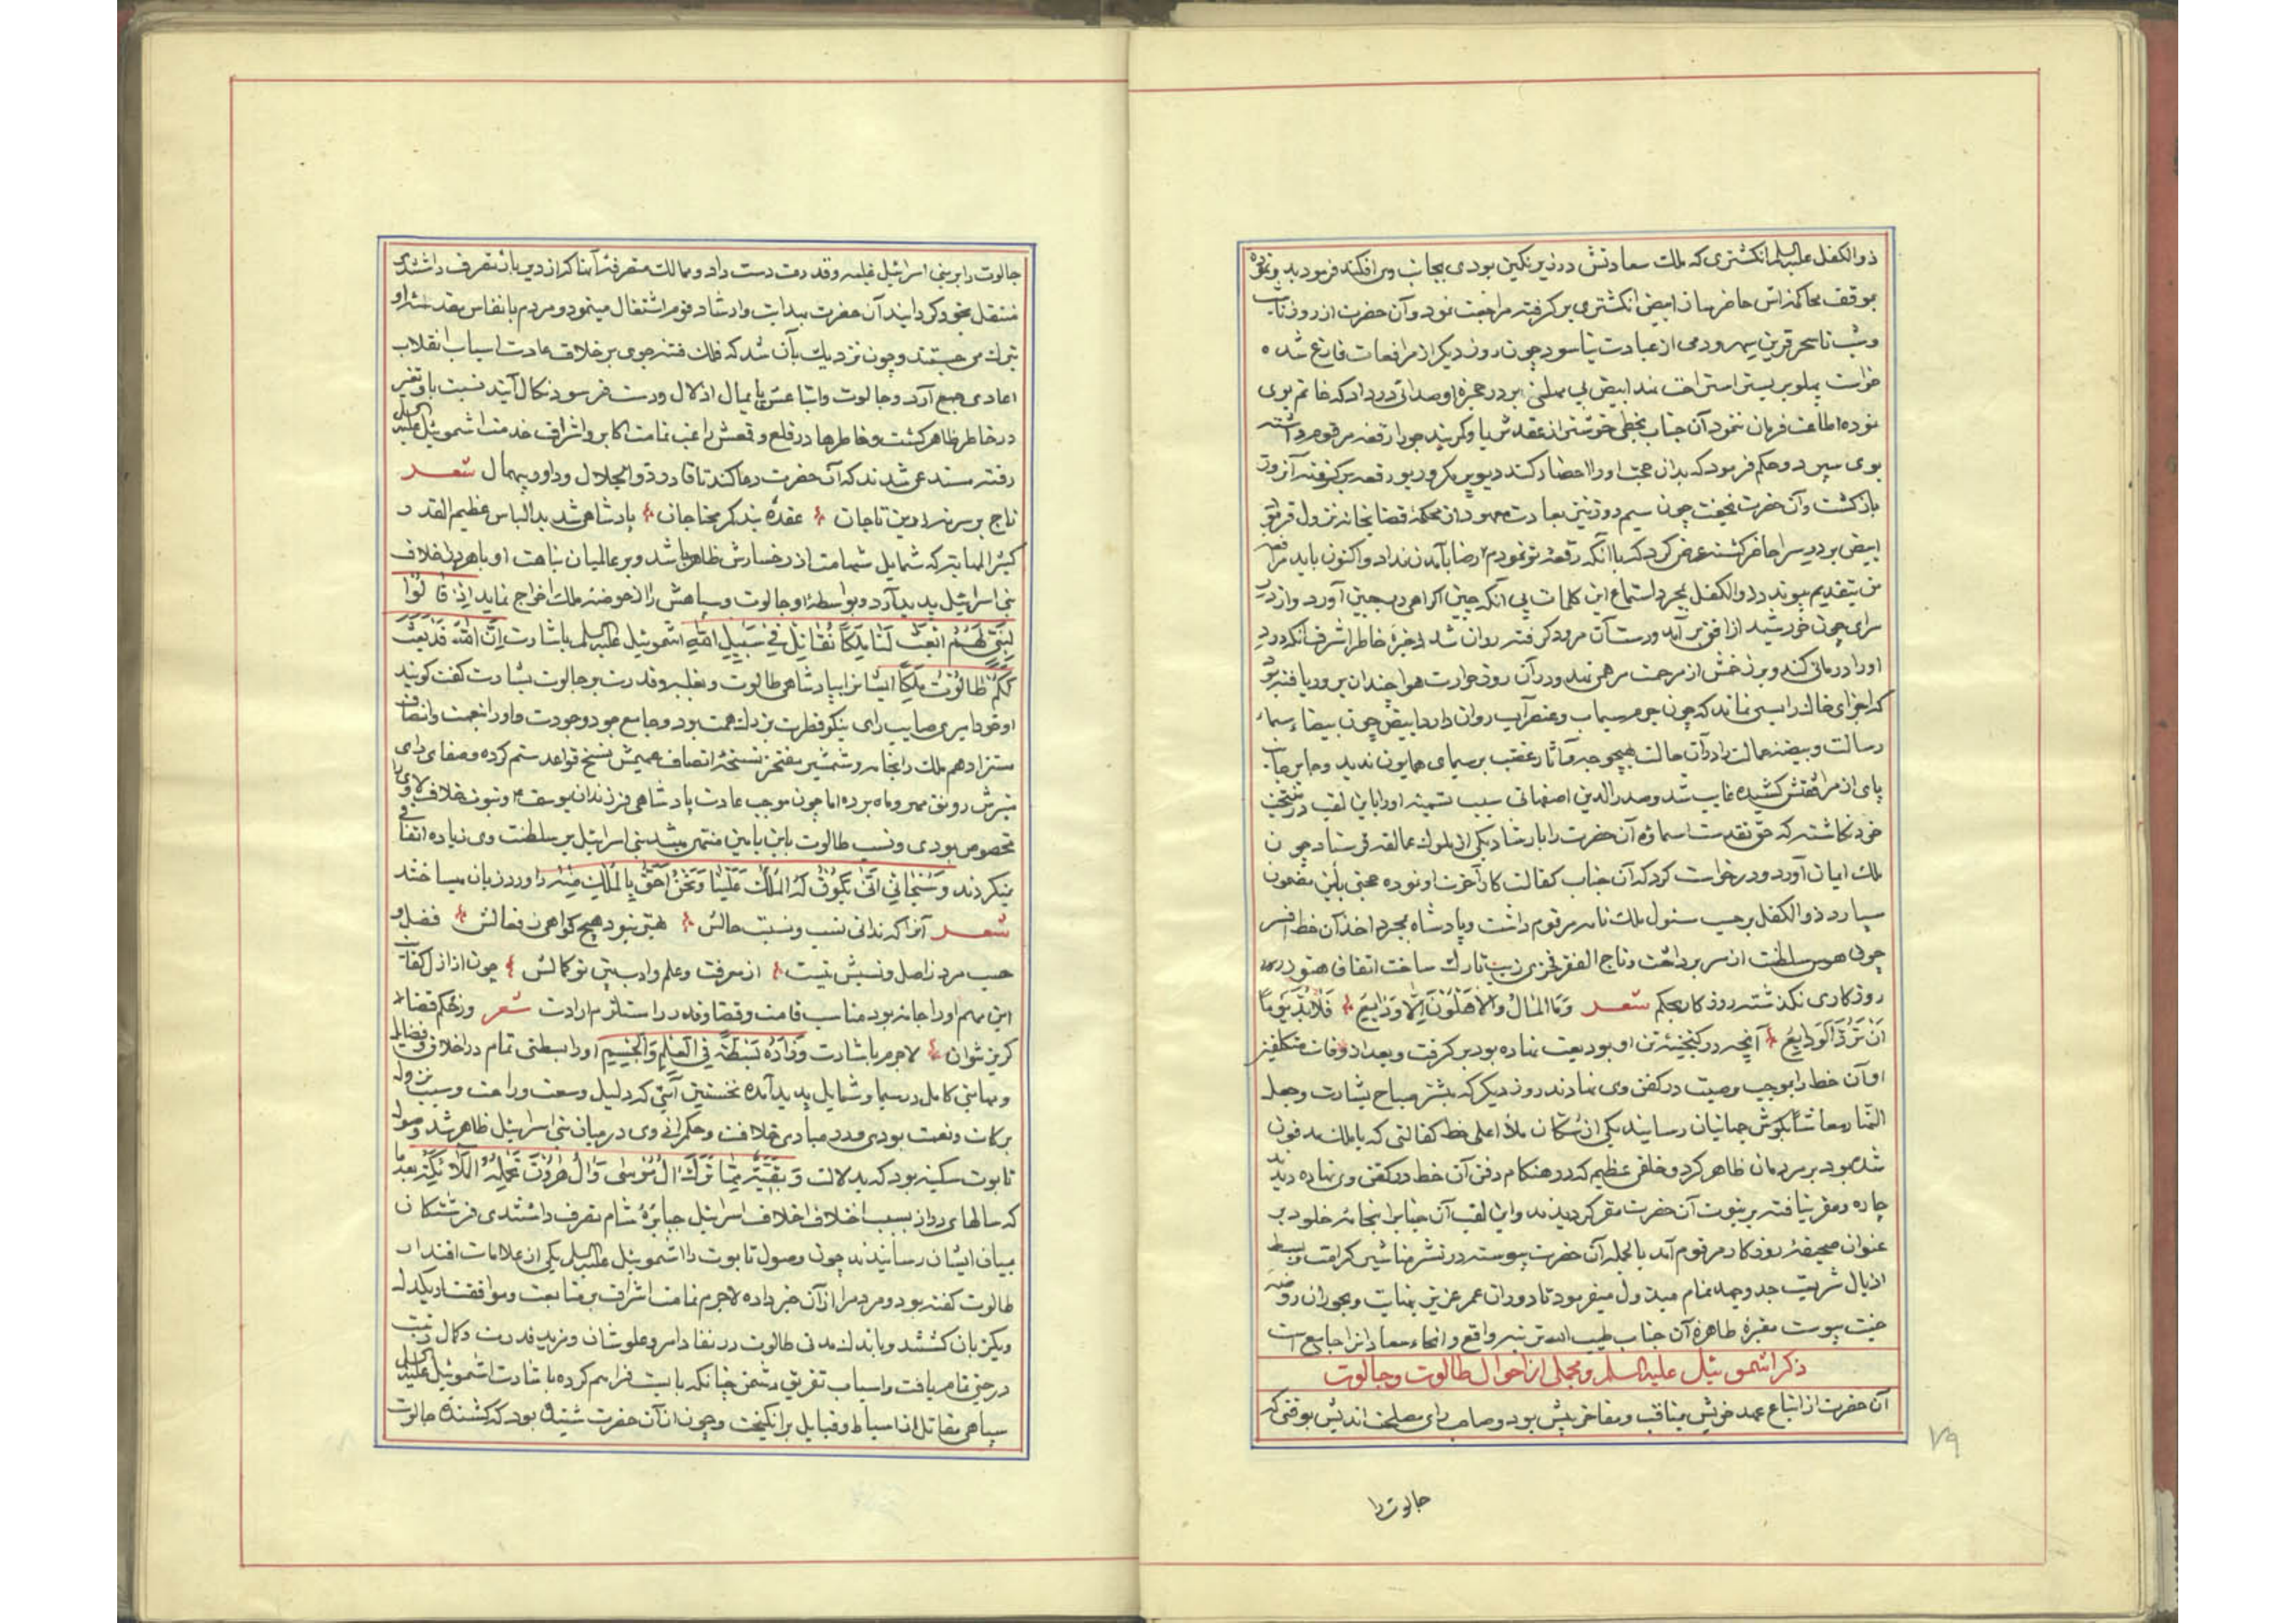 ذوالکفل علیه السلم انکشتری که ملک سعادتش در زیر نکین بودی بجانب وی افکند فرمود بدو
بموقف محاکمه اش حاضر ساز ابیض انکشتری برکرفته مراجعت نمود و آن حضرت از روز تا شب
و شب تا سحر قرین از عبادت نیاسود چون روز دیکر از مرافعات فارغ شده
خواست پهلو بر بستر استراحت نهد ابیض بر در حجره او صدائی در داد که خاتم بوی
نموده اطاعت فرمان ننمود آن جناب بخطی
بوی سپرد و حکم فرمود که بدان حجت او را احضار کند رقعه برکرفته آنروز
بازکشت و آن حضرت نخفت چون سیم روز بعادت معهود از محکمه قضا بخانه نزول
ابیض بر در سرا حاضر کشته عرض کرد که با آنکه رقعه تو نمودم رضا بآمدن نداد و اکنون باید
من بتقدیم پیوندد ذوالکفل بمجرد استماع این کلمات بی آنکه چین اکراهی بجبین آورد و از
سرای چون خورشید از افق برآمد و دست آن مرد کرفته روان شد
او را درمانی کند و بر زخمش از مرحمت مرهمی نهد و در آن روز حرارت هوا چندان
که اجزای خاک را بسی نماند که چون جوهر سیماب و عنصر آب روان دارد ابیض چون بیضاء سماء
رسالت و بیضه جلالت را در آن حالت بهیچوجه آثار غضب بر سیمای همایون ندید
پای از مرافقتش کشیده غایب شد و صدرالدین اصفهانی سبب تسمیه او را باین لقب در
خود نکاشته که حق تقدست اسماؤه آن حضرت را بارشاد یکی از ملوک عمالقه فرستاد چون
ملک ایمان آورد و درخواست کرد که آن جناب کفالت کار آخرت او نموده حجتی باین مضمون
سپارد ذوالکفل بر حسب مسئول ملک نامه مرقوم داشت و پادشاه بمجرد اخذ آن خط افسر
چون هوس سلطنت از سر برداشت و تاج الفقر فخری زیب تارک ساخت اتفاقا هنوز
روزکاری نکذشته روزکار بحکم شعر وما المال والاهلون الا ودایع فلا بد یوما
ان ترد الودایع آنچه در کنجینه تن او بودیعت نهاده بود برکرفت و بعد از وفات متکفلین
او آن خط را بموجب وصیت در کفن وی نهادند روز دیکر که مبشر صباح بشارت وجعلنا
النهار معاشا بکوش جهانیان رسانید یکی از سکان ملاء اعلی خط کفالتی که با ملک مدفون
شده بود بر مردمان ظاهر کرد و خلقی عظیم که در هنکام دفن آن خط در کفن وی نهاده دیدند
چاره و مفر نیافته بر نبوت آن حضرت مقر کردیدند و این لقب آن جناب را بخامه خلود بر
عنوان صحیفه روزکار مرقوم آمد بالجمله آن حضرت پیوسته در نشر مناشیر کرامت و بسط
اذیال شریعت جد و جهد تمام مبذول میفرمود تا دوران عمر عزیز بنهایت و بحوران روضه
جنت پیوست مقبره طاهره آن جناب طیب الله تربته
ذکر اشموئیل علیه السلم و مجملی از احوال طالوت و جالوت
آن حضرت از اتباع عهد خویش بمناقب و مفاخر بیش بود و صاحب رای مصلحت اندیش بوقتی که
جالوت را
۷۹
جالوت را بر بنی اسرائیل غلبه و قدرت دست داد و ممالک متفرقه آنها که از دیر باز بتصرف داشتندی
منتقل بخود کردانید آن حضرت بهدایت و ارشاد قوم اشتغال مینمود و مردم بانفاس
تبرک می جستند و چون نزدیک بآن شد که فلک فتنه جوی بر خلاف عادت اسباب انقلاب
اعادی جمع آرد و جالوت و اتباعش پایمال اذلال و دست فرسود نکال آیند نسبت باو تغیر
در خاطر ظاهر کشت و خاطرها در قلع و قمعش راغب تمامت اکابر و اشراف خدمت اشموئیل علیه السلم
رفته مستدعی شدند که آن حضرت دعا کند تا قادر ذوالجلال و داور بیهمال شعر
تاج بر سر نه زرین تاجان عقده بند کمر محتاجان پادشاهی شدید الباس عظیم القدر
کثیر المهابة که شمایل شهامت از رخسارش ظاهر باشد و بر عالمیان نباهت او باهر از اخلاف
بنی اسرائیل پدید آرد و بواسطه او جالوت و سپاهش را از حوضه ملک اخراج نماید اذ قالوا
لنبی لهم ابعث لنا ملکا نقاتل فی سبیل الله اشموئیل علیه السلم باشارت ان الله قد بعث
لکم طالوت ملکا ایشان را بپادشاهی طالوت و بغلبه و قدرت بر جالوت بشارت کفت کویند
او خود امیری صایب رای نیکو فطرت بزرک همت بود و جامع جود و جودت
ستزاد هم ملک را بخامه و شمشیر مفتخر نسخه انصاف عمیمش نسخ قواعد ستم کرده و صفای رای
منیرش رونق مهر و ماه برده اما چون موجب عادت پادشاهی فرزندان یوسف و نبوت خلاف لاوی را
مخصوص بودی و نسب طالوت بابن یامین منتهی میشد بنی اسرائیل بر سلطنت وی زیاده اتفاقی
نمیکردند و انی یکون له الملک علینا ونحن احق بالملک منه را ورد زبان میساختند
شعر آنرا که ندانی نسب و نسبت حالش هیچ کواهی چو فعالش فضل و
حسب مرد ز اصل و نسبش نیست از معرفت و علم و ادب بین تو کمالش چون از ازل کفایت
این مهم او را جامه بود مناسب قامت و قضا و قدر را ستلزم ارادت شعر وز حکم قضا
کریز نتوان لاجرم باشارت وزاده بسطة فی العلم والجسم او را بسطتی تمام در اخلاق و فضایل
و بهائی کامل در سیما و شمایل پدید آمده نخستین آیتی که دلیل وسعت و راحت و سبب نزول
برکات و نعمت بودی و در مبادی خلافت و حکمرانی وی در میان بنی اسرائیل ظاهر شد وصول
تابوت سکینه بود که بدلالت وبقیة مما ترک آل موسی وآل هرون تحمله الملائکة بعد ما
که سالهای دراز بسبب اختلاف اخلاف اسرائیل جبابره شام بتصرف داشتندی فرشتکان
بمیان ایشان رسانیدند چون وصول تابوت را اشموئیل علیه السلم یکی از علامات اقتدار
طالوت کفته بود و مردم را از آن خبر داده لاجرم تمامت اشراف بر متابعت و موافقت او یکدل
و یکزبان کشتند و باندک مدتی طالوت در نفاد امر و علو شان و مزید قدرت و کمال
در حق تمام یافت و اسباب تفریق دشمن چنانکه بایست فراهم کرده باشارت اشموئیل علیه السلم
سپاهی مقاتل از اسباط و قبایل برانکیخت و چون از آن حضرت شنیده بود که کشنده جالوت